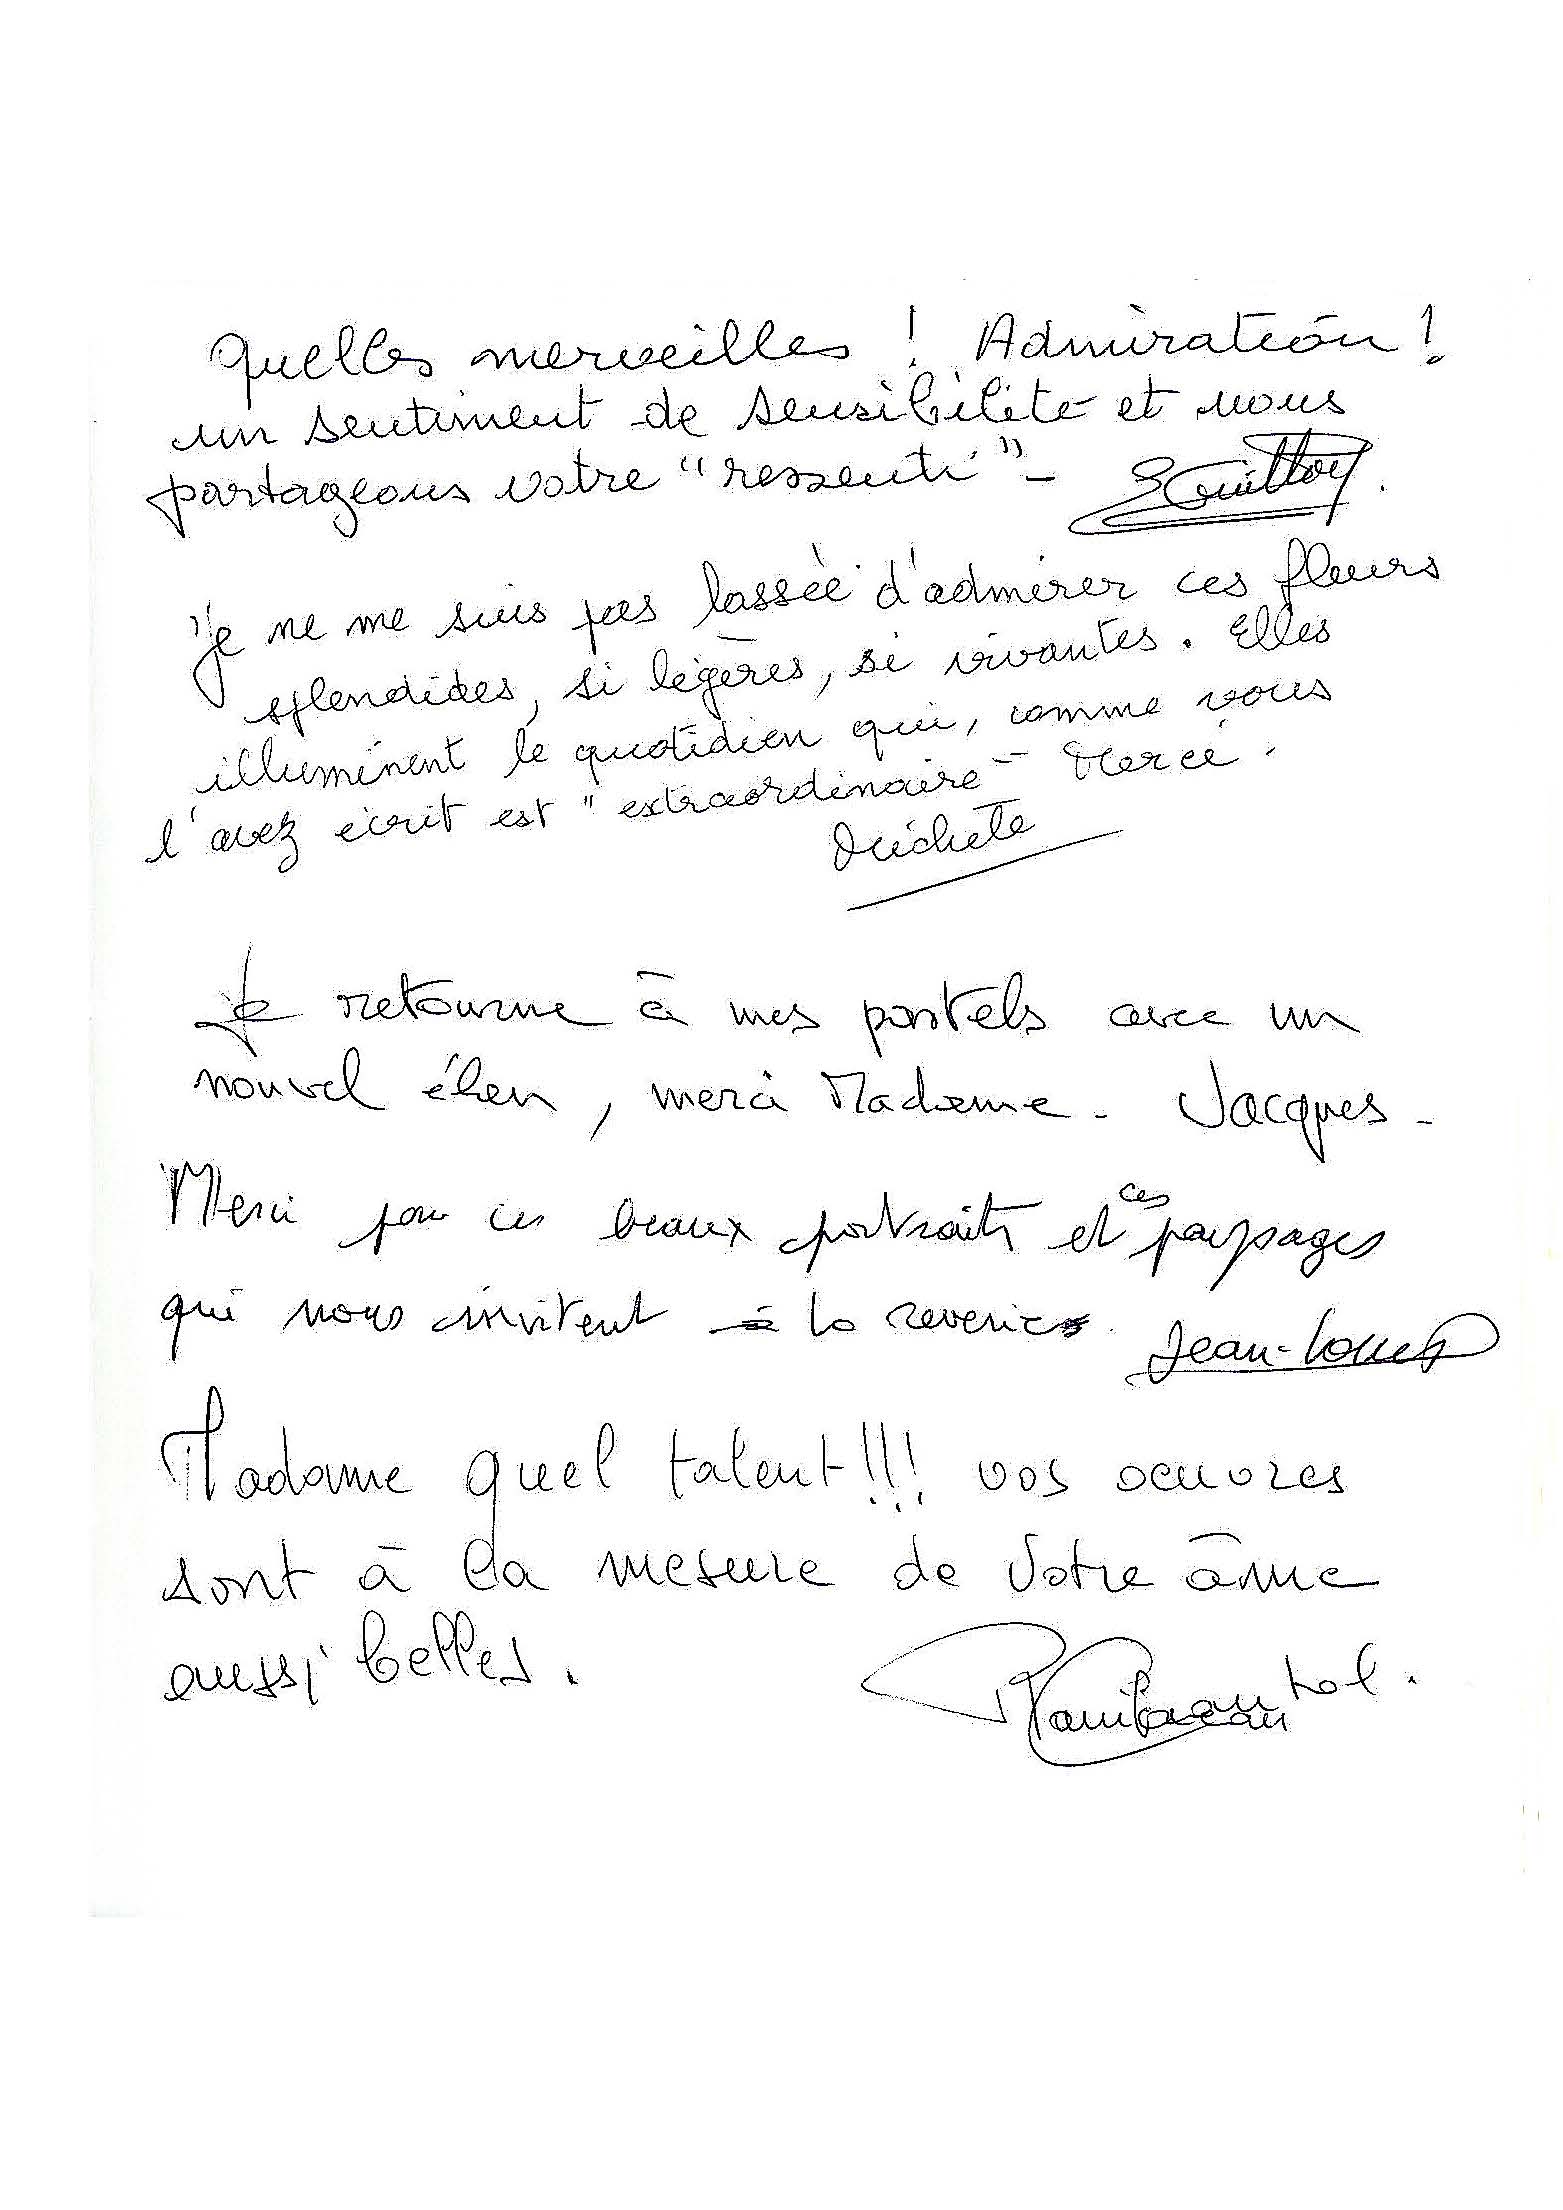 Quelles merveilles ! Admiration !
un sentiment de sensibilité et nous
partageons votre "ressenti" -
Je ne me suis pas lassée d'admirer ces fleurs
splendides, si légères, si vivantes. Elles
illuminent le quotidien qui, comme vous
l'avez écrit est "extraordinaire - Merci.
Michete
Je retourne à mes pastels avec un
nouvel élan, merci Madame - Jacques -
Merci pour ces beaux portraits et ces paysages
qui nous invitent à la reverie. Jean-Louis
Madame quel talent !!! vos oeuvres
sont à la mesure de votre âme
aussi belles.